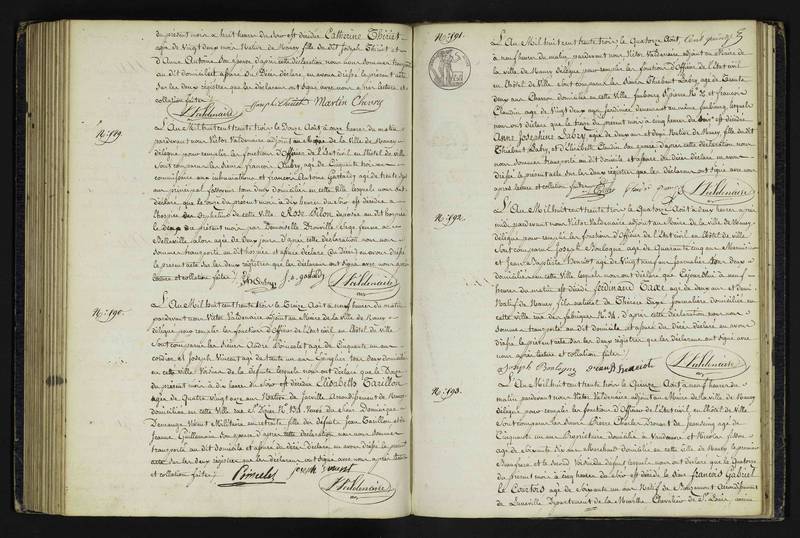 du présent mois à huit heures du soir est décédée Catherine Thiriet
âgée de Vingt deux mois Native de Nancy fille du dit Joseph Thiriet et
d'Anne Antoine son épouse d'après cette déclaration nous nous sommes transporté
au dit domicile, assuré du Décès déclaré, en avons dressé le présent acte
sur les deux registres que les déclarants ont signé avec nous après lecture et
collation faites
Joseph Thiriet Martin Chenry
Valdenaire
N.º 189.
L'An Mil huit cent trente trois le Douze Août à onze heures du matin
pardevant nous Victor Valdenaire adjoint au Maire de la Ville de Nancy
délégué pour remplir les fonctions d'Officier de l'état civil en l'hôtel de ville
sont comparus les sieurs François Aubry, âgé de Cinquante trois ans
commissaire aux subsistances et François Antoine âgé de trente
ans principal fossoyeur tous deux domiciliés en cette ville lesquels nous ont
déclaré que le onze du présent mois à dix heures du soir est décédée à
l'hospice des Orphelins de cette Ville Rose Bilon déposée au dit hospice
le du présent mois par Demoiselle Sage femme
Belleville alors âgée de deux jours. D'après cette déclaration nous nous
sommes transporté au dit hospice et assuré du Décès en avons dressé
le présent acte sur les deux registres que les déclarants ont signé avec nous après
lecture et collation faites
Valdenaire
N.º 190.
L'An Mil huit cent trente trois le Treize Août à neuf heures du matin
pardevant nous Victor Valdenaire adjoint au Maire de la Ville de Nancy
délégué pour remplir les fonctions d'Officier de l'état civil en l'hôtel de Ville
sont comparus les sieurs André Poirselet âgé de Cinquante un ans
cordier et Joseph Vincent âgé de trente un ans tous deux domiciliés
en cette ville Voisins de la défunte lesquels nous ont déclaré que le Douze
du présent mois à dix heures du soir est décédée Elisabeth Tavillon
âgée de Quatre Vingt onze ans Native de Joinville Arrondissement de
domiciliée en cette Ville rue St. Dizier N.º 131. Veuve du sieur Dominique
Demange Vivant Militaire en retraite, fille des défunts Jean Tavillon et
Jeanne Guillemin son épouse d'après cette déclaration nous nous sommes
transporté au dit domicile et assuré du Décès déclaré en avons dressé le présent
acte sur les deux registres que les déclarants ont signé avec nous après lecture
et collation faites
Joseph Vincent
Valdenaire
N.º 191.
L'An Mil huit cent trente trois, le Quatorze Août, Cent quinze
à neuf heures du matin, pardevant nous Victor Valdenaire adjoint au Maire de
la ville de Nancy délégué pour remplir les fonctions d'Officier de l'état civil
en l'hôtel de Ville, sont comparus les sieurs Thiébaut Labry, âgé de Trente
deux ans Charron domicilié en cette ville, faubourg St. Pierre et François
Claudin âgé de Vingt deux ans, Jardinier demeurant au même faubourg, lesquels
nous ont déclaré que le treize du présent mois à cinq heures du soir est décédée
Anne Joséphine Labry âgée de deux ans et demi Native de Nancy, fille du dit
Thiébaut Labry, et d'Elisabeth Claudin son épouse d'après cette déclaration nous
nous sommes transporté au dit domicile et assuré du Décès déclaré, en avons
dressé le présent acte sur les deux registres que les déclarants ont signé avec nous
après lecture et collation faites
Valdenaire
N.º 192.
L'An Mil huit cent trente trois, le Quatorze Août à deux heures après
midi, pardevant nous Victor Valdenaire adjoint au Maire de la ville de Nancy
délégué pour remplir les fonctions d'Officier de l'état civil, en l'hôtel de ville
sont comparus Joseph Boulogne âgé de Quarante cinq ans Menuisier
et Jean Baptiste Benoist âgé de Vingt neuf ans Journalier tous deux
domiciliés en cette ville lesquels nous ont déclaré que Cejourd'hui à neuf
heures du matin est décédé ferdinand Saxe âgé de deux ans et demi
Natif de Nancy fils naturel de Thérèse Saxe Journalière domiciliée en
cette ville rue des fabriques N.º 34. d'après cette déclaration nous nous
sommes transporté au dit domicile et assuré du Décès déclaré en avons
dressé le présent acte sur les deux registres que les déclarants ont signé avec
nous après lecture et collation faites
Joseph Boulogne Jean B Benoist
Valdenaire
N.º 193.
L'An Mil huit cent trente trois le Quinze Août à neuf heures du
matin pardevant nous Victor Valdenaire adjoint au Maire de la Ville de Nancy
délégué pour remplir les fonctions d'Officier de l'état civil, en l'hôtel de Ville
sont comparus les sieurs Pierre Charles âgé de
Cinquante un ans Propriétaire domicilié à Vandœuvre et Nicolas
âgé de soixante dix ans Marchand domicilié en cette Ville de Nancy le premier
et le second Voisin du défunt lesquels nous ont déclaré que le Quatorze
du présent mois à cinq heures du soir est décédé le sieur françois Gabriel
Le Courtois âgé de soixante un ans Natif de Arrondissement
de Lunéville Département de la Meurthe Chevalier de St. Louis ancien